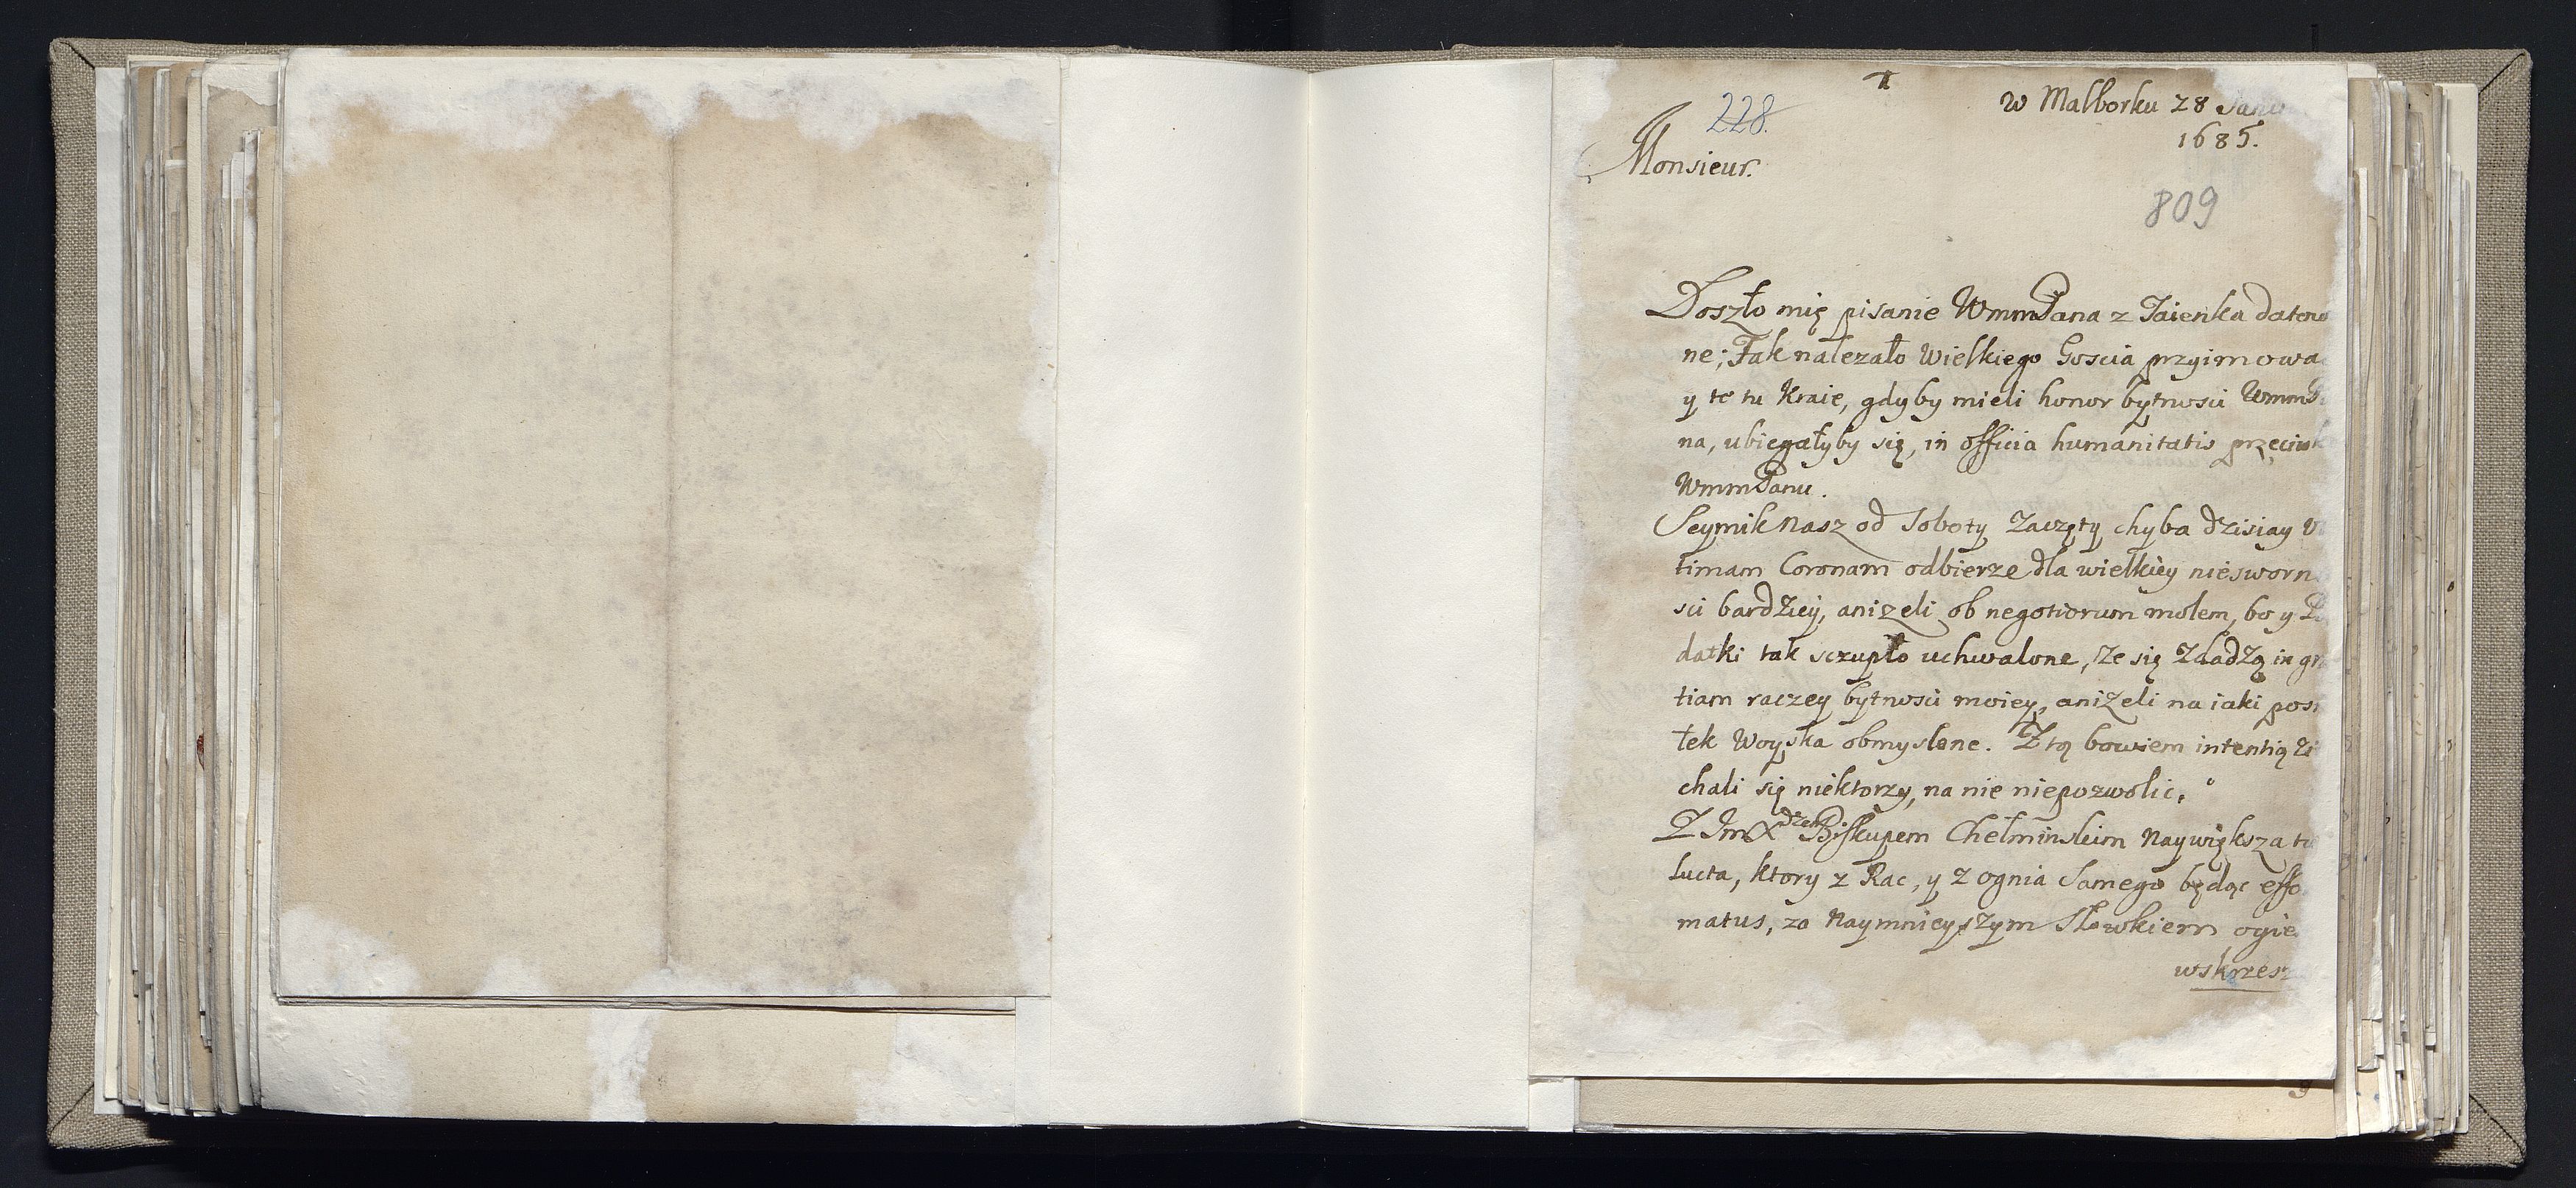 w Malborku 28 Janu
1685.
228.
Monsieur.
809
Doszło mię pisanie WmmPana z Jaienka datow
ne; Jak nalezało Wielkiego Goscia przyimowa
y te tu Kraie, gdyby mieli honor bytnosci WmmP
na, ubiegałyby się, in officia humanitatis przeciwk
WmmPanu.
Seymik nasz od Soboty zaczęty chyba dzisiay V
timam Coronam odbierze dla wielkiey niesworn
sci bardziey, anizeli ob negotiorum molem, bo y P
datki tak sczupło uchwalone, ze się zdadzą in gr
tiam raczey bytnosci moiey, anizeli na iaki posi
łek Woyska obmyslane. Z tą bowiem intentią zi
chali się niektorzy, na nie niepozwolic.
Z JmXdzem Biskupem Chełminskim Naywiększa tu
lucta, ktory z Rac, y z ognia samego będąc effo
matus, za Naymnieyszym Słowkiem ogie
wskrzesz